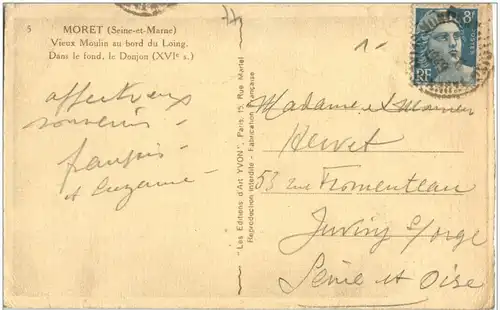 5 MORET (Seine-et-Marne)
Vieux Moulin au bord du Loing.
Dans le fond, le Donjon (XVIe s.)
affectueux
souvenirs
françois
et Suzanne
"Les Editions d'Art YVON", Paris, 15, Rue Martel
Reproduction interdite - Fabrication Française
1-
8F
POSTES
RF
Madame et Monsieur
Hervet
53 rue Fromenteau
Juvisy s/orge
Seine et Oise